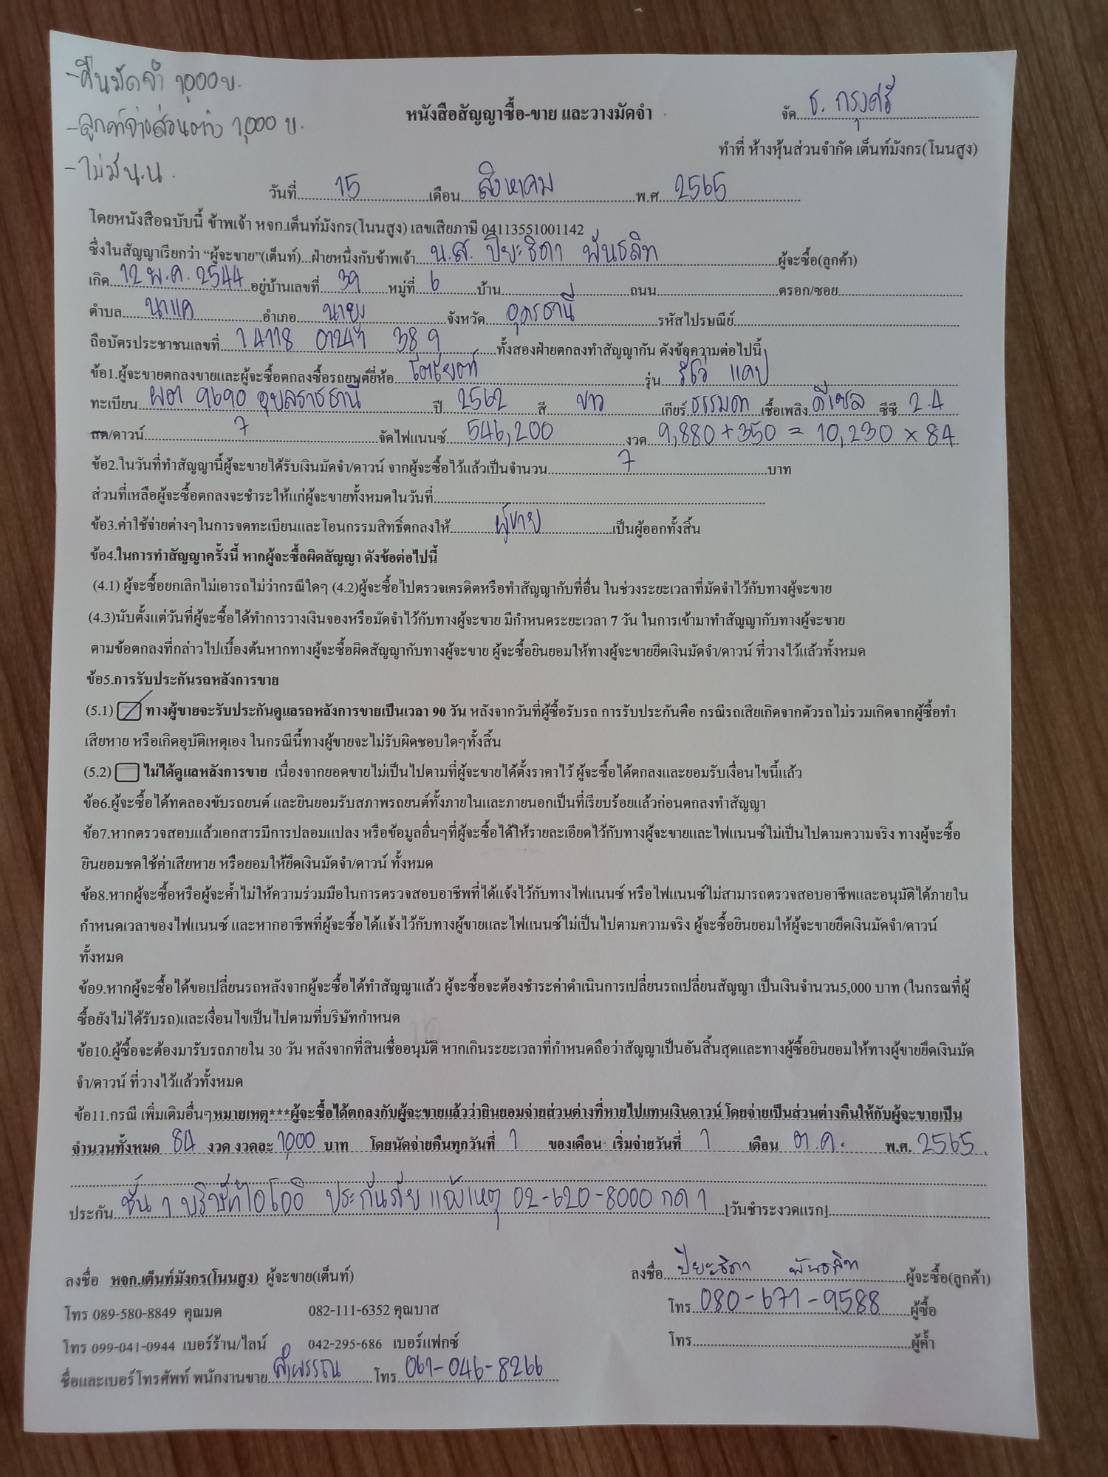 -คืนมัดจำ 1000 บ.
-ลูกค้าจ่ายส่วนต่าง 1,000 บ.
-ไม่มี น.น.
หนังสือสัญญาซื้อ-ขาย และวางมัดจำ
จัด ธ. กรุงศรี
ทำที่ ห้างหุ้นส่วนจำกัด เต็นท์มังกร(โนนสูง)
วันที่ 15 เดือน สิงหาคม พ.ศ 2565
โดยหนังสือฉบับนี้ ข้าพเจ้า หจก.เต็นท์มังกร(โนนสูง) เลขเสียภาษี 04113551001142
ซึ่งในสัญญาเรียกว่า "ผู้จะขาย"(เต็นท์)...ฝ่ายหนึ่งกับข้าพเจ้า น.ส. ปิยะธิดา พันธลิท ผู้จะซื้อ(ลูกค้า)
เกิด 12 พ.ค. 2544 อยู่บ้านเลขที่ 39 หมู่ที่ 6 บ้าน ถนน ตรอก/ซอย
ตำบล นาแค อำเภอ นายูง จังหวัด อุดรธานี รหัสไปรษณีย์
ถือบัตรประชาชนเลขที่ ทั้งสองฝ่ายตกลงทำสัญญากัน ดังข้อความต่อไปนี้
ข้อ1.ผู้จะขายตกลงขายและผู้จะซื้อตกลงซื้อรถยนต์ยี่ห้อ โตโยต้า รุ่น รีโว่ แคป
ทะเบียน ผต 9690 อุบลราชธานี ปี 2562 สี ขาว เกียร์ ธรรมดา เชื้อเพลิง ดีเซล ซีซี 2.4
สด/ดาวน์ 7 จัดไฟแนนซ์ 546,200 งวด 9,880 + 350 = 10,230 × 84
ข้อ2.ในวันที่ทำสัญญานี้ผู้จะขายได้รับเงินมัดจำ/ดาวน์ จากผู้จะซื้อไว้แล้วเป็นจำนวน 7 บาท
ส่วนที่เหลือผู้จะซื้อตกลงจะชำระให้แก่ผู้จะขายทั้งหมดในวันที่
ข้อ3.ค่าใช้จ่ายต่างๆในการจดทะเบียนและโอนกรรมสิทธิ์ตกลงให้ ผู้ขาย เป็นผู้ออกทั้งสิ้น
ข้อ4.ในการทำสัญญาครั้งนี้ หากผู้จะซื้อผิดสัญญา ดังข้อต่อไปนี้
(4.1) ผู้จะซื้อยกเลิกไม่เอารถไม่ว่ากรณีใดๆ (4.2)ผู้จะซื้อไปตรวจเครดิตหรือทำสัญญากับที่อื่น ในช่วงระยะเวลาที่มัดจำไว้กับทางผู้จะขาย
(4.3)นับตั้งแต่วันที่ผู้จะซื้อได้ทำการวางเงินจองหรือมัดจำไว้กับทางผู้จะขาย มีกำหนดระยะเวลา 7 วัน ในการเข้ามาทำสัญญากับทางผู้จะขาย
ตามข้อตกลงที่กล่าวไปเบื้องต้นหากทางผู้จะซื้อผิดสัญญากับทางผู้จะขาย ผู้จะซื้อยินยอมให้ทางผู้จะขายยึดเงินมัดจำ/ดาวน์ ที่วางไว้แล้วทั้งหมด
ข้อ5.การรับประกันรถหลังการขาย
(5.1) ทางผู้ขายจะรับประกันดูแลรถหลังการขายเป็นเวลา 90 วัน หลังจากวันที่ผู้ซื้อรับรถ การรับประกันคือ กรณีรถเสียเกิดจากตัวรถไม่รวมเกิดจากผู้ซื้อทำ
เสียหาย หรือเกิดอุบัติเหตุเอง ในกรณีนี้ทางผู้ขายจะไม่รับผิดชอบใดๆทั้งสิ้น
(5.2) ไม่ได้ดูแลหลังการขาย เนื่องจากยอดขายไม่เป็นไปตามที่ผู้จะขายได้ตั้งราคาไว้ ผู้จะซื้อได้ตกลงและยอมรับเงื่อนไขนี้แล้ว
ข้อ6.ผู้จะซื้อได้ทดลองขับรถยนต์ และยินยอมรับสภาพรถยนต์ทั้งภายในและภายนอกเป็นที่เรียบร้อยแล้วก่อนตกลงทำสัญญา
ข้อ7.หากตรวจสอบแล้วเอกสารมีการปลอมแปลง หรือข้อมูลอื่นๆที่ผู้จะซื้อได้ให้รายละเอียดไว้กับทางผู้จะขายและไฟแนนซ์ไม่เป็นไปตามความจริง ทางผู้จะซื้อ
ยินยอมชดใช้ค่าเสียหาย หรือยอมให้ยึดเงินมัดจำ/ดาวน์ ทั้งหมด
ข้อ8.หากผู้จะซื้อหรือผู้จะค้ำไม่ให้ความร่วมมือในการตรวจสอบอาชีพที่ได้แจ้งไว้กับทางไฟแนนซ์ หรือไฟแนนซ์ไม่สามารถตรวจสอบอาชีพและอนุมัติได้ภายใน
กำหนดเวลาของไฟแนนซ์ และหากอาชีพที่ผู้จะซื้อได้แจ้งไว้กับทางผู้ขายและไฟแนนซ์ไม่เป็นไปตามความจริง ผู้จะซื้อยินยอมให้ผู้จะขายยึดเงินมัดจำ/ดาวน์
ทั้งหมด
ข้อ9.หากผู้จะซื้อได้ขอเปลี่ยนรถหลังจากผู้จะซื้อได้ทำสัญญาแล้ว ผู้จะซื้อจะต้องชำระค่าดำเนินการเปลี่ยนรถเปลี่ยนสัญญา เป็นเงินจำนวน5,000 บาท (ในกรณที่ผู้
ซื้อยังไม่ได้รับรถ)และเงื่อนไขเป็นไปตามที่บริษัทกำหนด
ข้อ10.ผู้ซื้อจะต้องมารับรถภายใน 30 วัน หลังจากที่สินเชื่ออนุมัติ หากเกินระยะเวลาที่กำหนดถือว่าสัญญาเป็นอันสิ้นสุดและทางผู้ซื้อยินยอมให้ทางผู้ขายยึดเงินมัด
จำ/ดาวน์ ที่วางไว้แล้วทั้งหมด
ข้อ11.กรณี เพิ่มเติมอื่นๆหมายเหตุ***ผู้จะซื้อได้ตกลงกับผู้จะขายแล้วว่ายินยอมจ่ายส่วนต่างที่หายไปแทนเงินดาวน์ โดยจ่ายเป็นส่วนต่างคืนให้กับผู้จะขายเป็น
จำนวนทั้งหมด 84 งวด งวดละ 1000 บาท โดยนัดจ่ายคืนทุกวันที่ 1 ของเดือน เริ่มจ่ายวันที่ 1 เดือน ต.ค. พ.ศ. 2565.
ประกัน ชั้น 1 บริษัทไอโออิ ประกันภัย แจ้งเหตุ 02-620-8000 กด 1 [วันชำระงวดแรก]
ลงชื่อ หจก.เต็นท์มังกร(โนนสูง) ผู้จะขาย(เต็นท์)
ลงชื่อ ปิยะธิดา พันธลิท ผู้จะซื้อ(ลูกค้า)
โทร 089-580-8849 คุณมด 082-111-6352 คุณบาส
โทร 080-671-9588 ผู้ซื้อ
โทร 099-041-0944 เบอร์ร้าน/ไลน์ 042-295-686 เบอร์แฟกซ์
โทร ผู้ค้ำ
ชื่อและเบอร์โทรศัพท์ พนักงานขาย ลำพรรณ โทร 061-046-8266